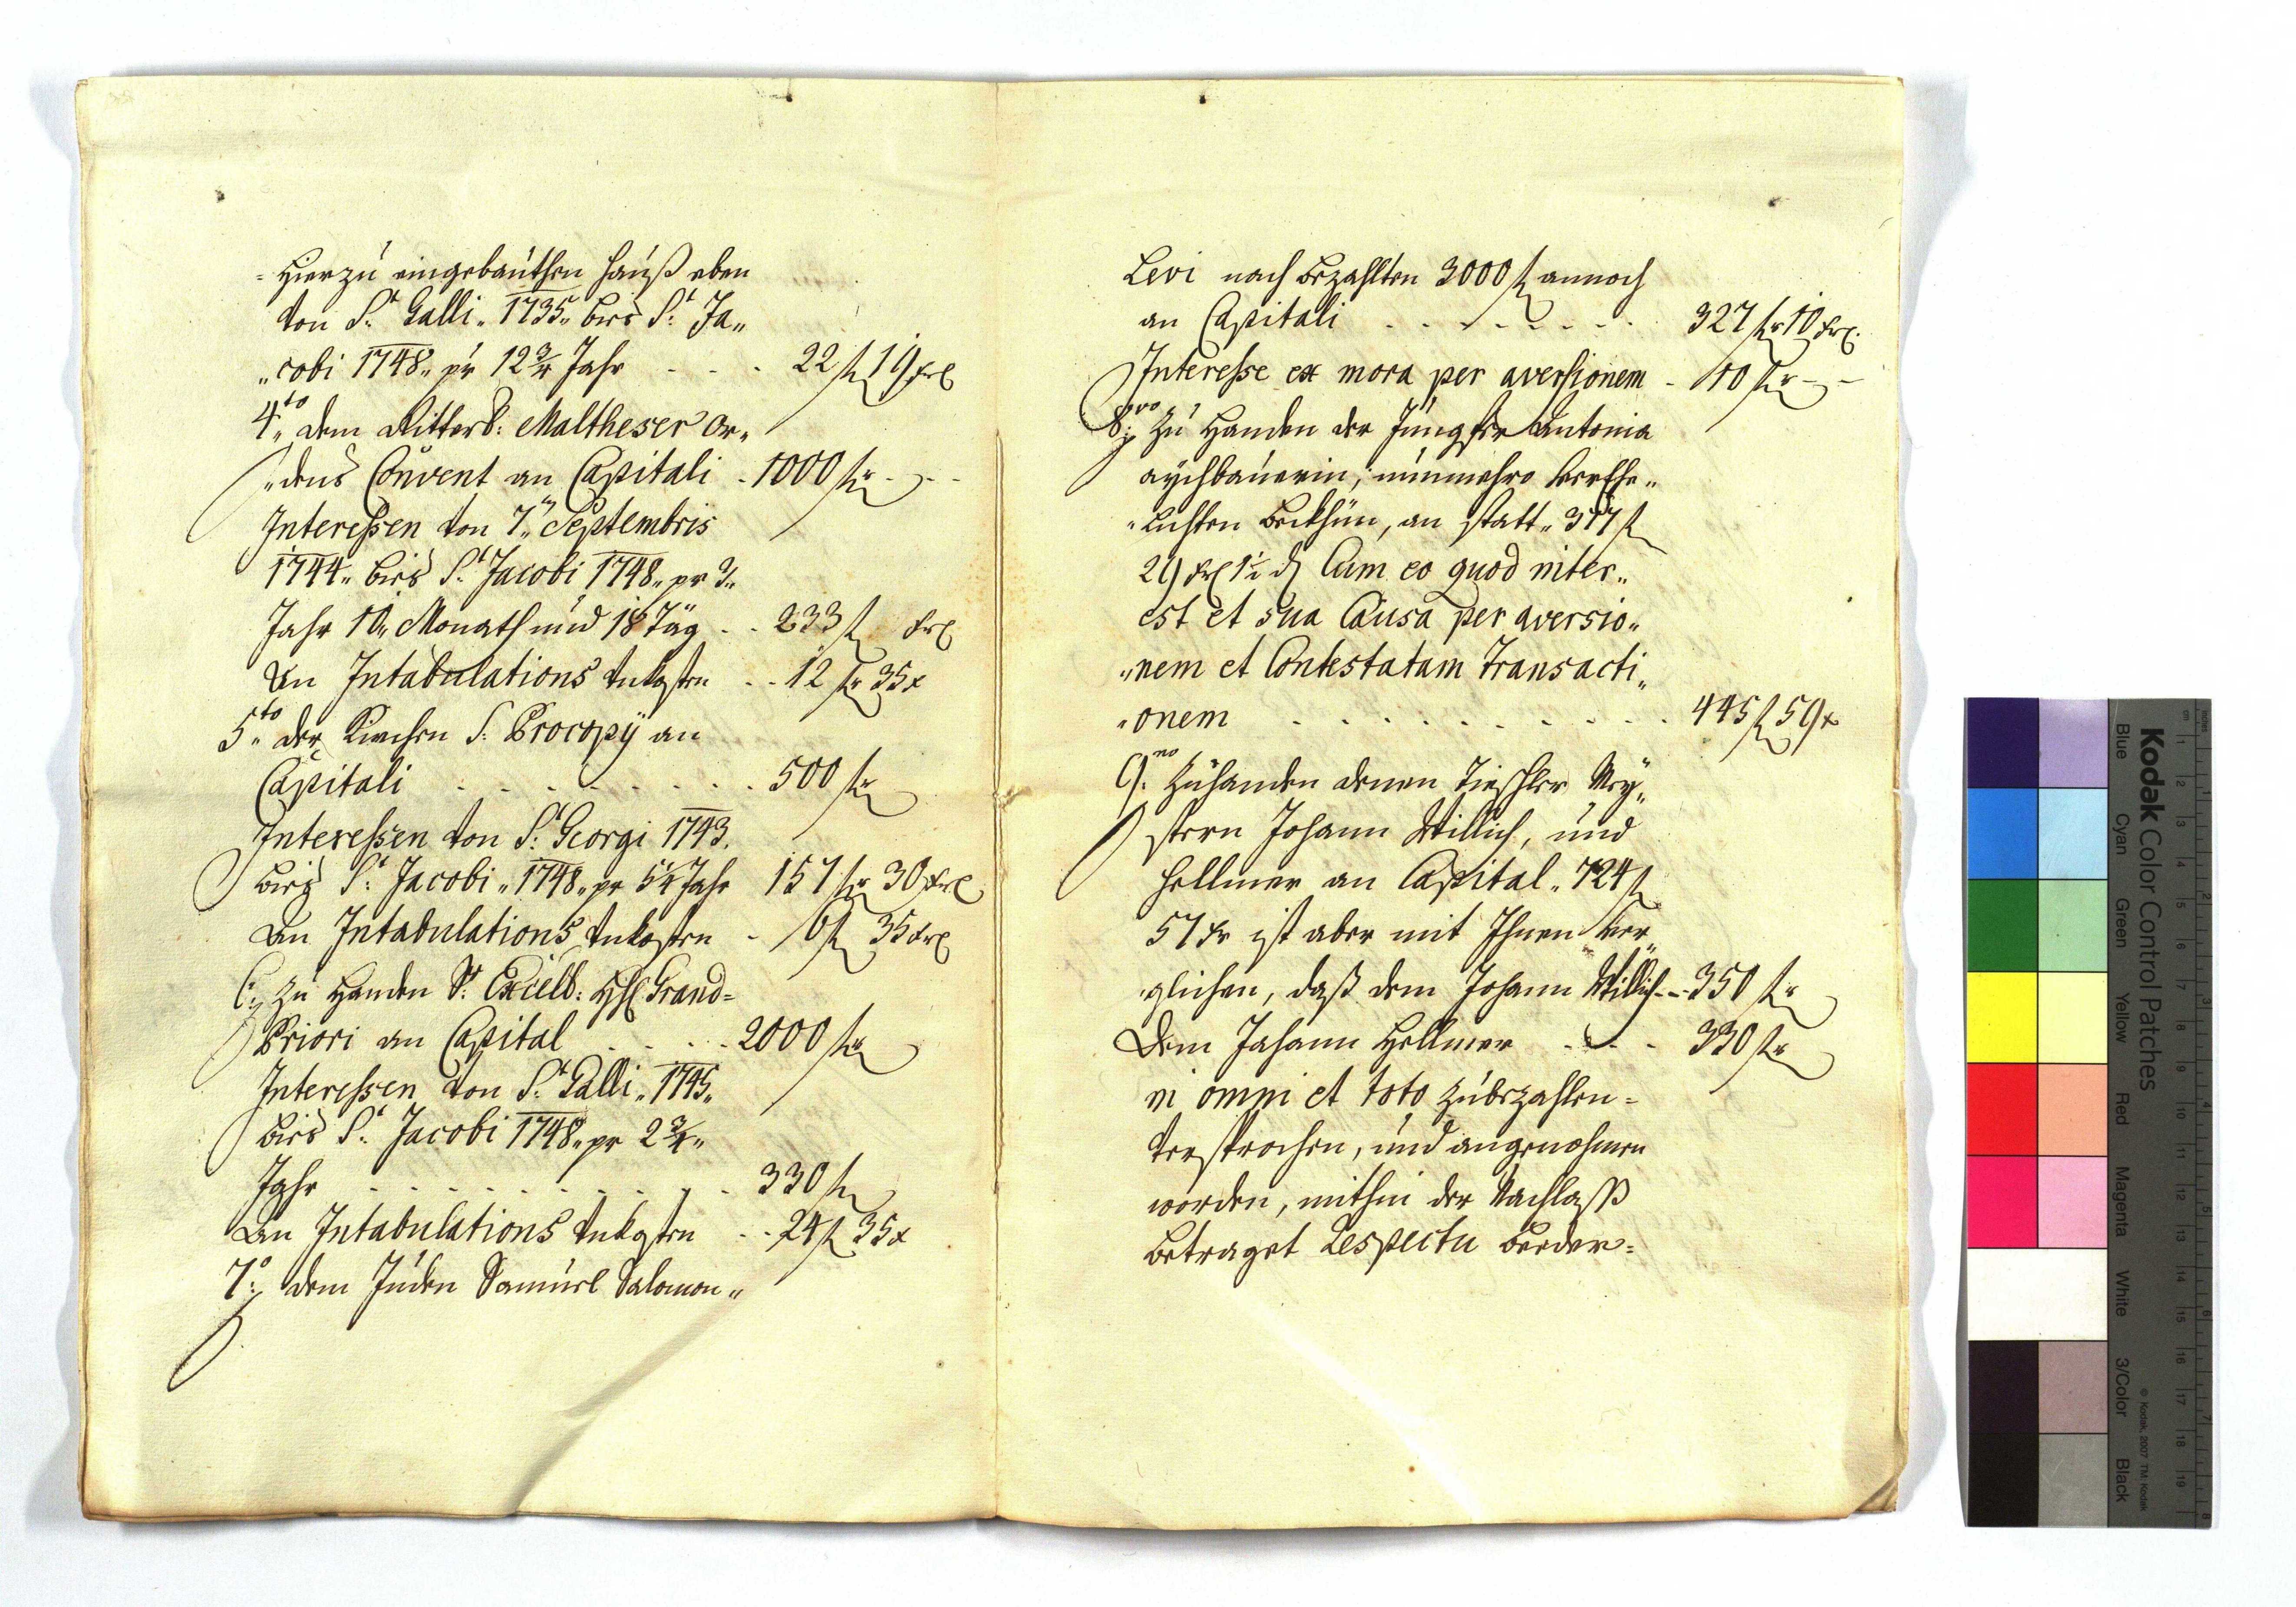 = Hierzú eingebaúthen Haúß eben
von St: Galli „ 1735 „ bies St: Ja„
„cobi 1748 „ pr 12 3/4 Jahr - - - 22 f 19 Xr
4to „ dem Ritterl: Maltheser Or„
„dens Convent an Capitali - 1000 fr - -
Interessen von 7„ Septembris
1744 „ bies St: Jacobi 1748 „ pr 3 „
Jahr 10 „ Monath und 18 Täg - - 233 f Xr
An Intabulations Unkosten - - 12 fr 35 x
5to „ der Kirchen S: Procopÿ an
Capitali - - - - - - - - 500 fr
Interessen von St: Georgi 1743.
bies St: Jacobi „ 1748 „ pr 5 1/4 Jahr 157 fr 30 Xr
An Intabulations Unkosten - 6 f 35 Xr
6: Zu Handen Sr: Excell: H: Grand=
Priori an Capital - - - - 2000 fr
Interessen von St: Galli „ 1745 „
bies St: Jacobi 1748 „ pr 2 3/4 „
Jahr - - - - - - - - - 330 f
An Intabulations Unkosten - - 24 f 35 x
7o: dem Júden Samúel Salomon „
Levi nach bezahlten 3000 f annoch
an Capitali - - - - - - - 327 fr 10 Xr
Interesse ex mora per aversionem - 10 fr - -
8vo: Zú Handen der Júngfer Antonia
aÿchbaúerin, núnmehro verEhe„
„lichten , an statt „ 317 f
29 Xr 1 1/2 d Cum eo quod inter„
est et sua Causa per aversio„
„nem et Contestatam Transacti„
„onem - - - - - - - - - 445 f 59 x
9:no Zúhanden denen Tischler Meÿ„
stern Johann Willich, únd
Hellmer an Capital „ 724 f
57 Xr ist aber mit Ihnen ver„
„glichen, daß dem Johann Willich - - 350 fr
Dem Johann Hellmer - - - 330 fr
in omni et toto zúbezahlen =
versprochen, únd angenohmen
worden, mithin der Nachlaß
betraget Respectu beeder =
Kodak Color Control Patches
Blue Cyan Green Yellow Red Magenta White 3/Color Black
© Kodak, 2007 TM: Kodak